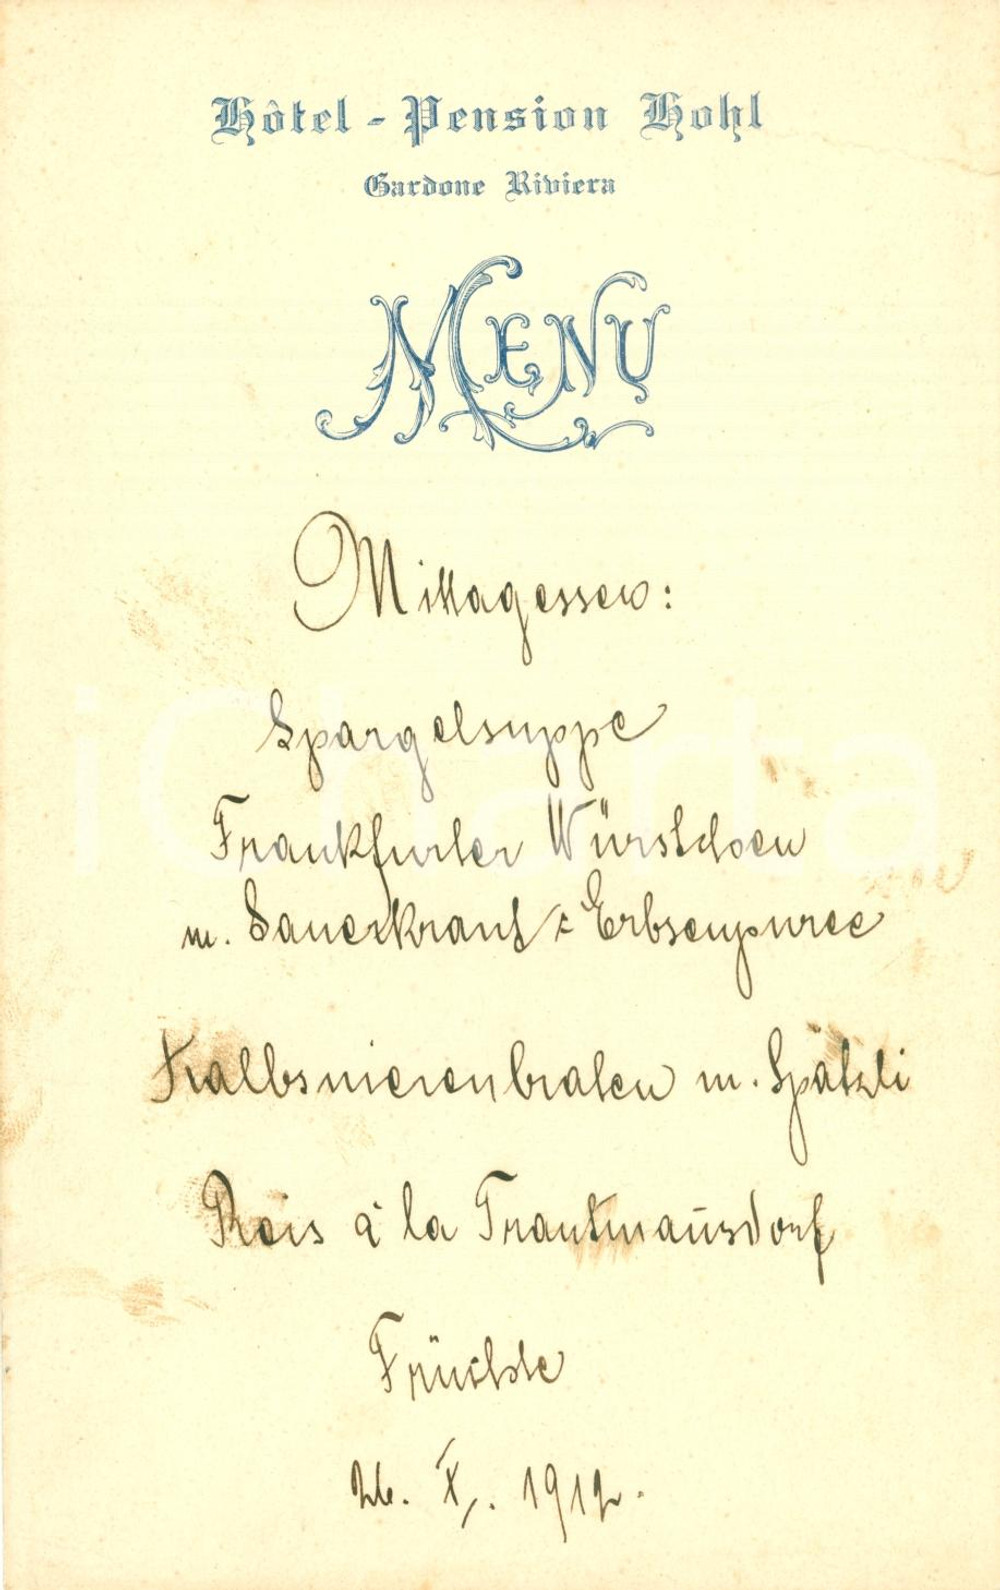 Hôtel - Pension Hohl
Gardone Riviera
MENU
Mittagessen:
Spargelsuppe
Frankfurter Würstchen
m. Sauerkraut & Erbsenpuree
Kalbsnierenbraten m. Spätzli
Reis à la Trautmañsdorf
Früchte
26. X. 1912.
iCharta